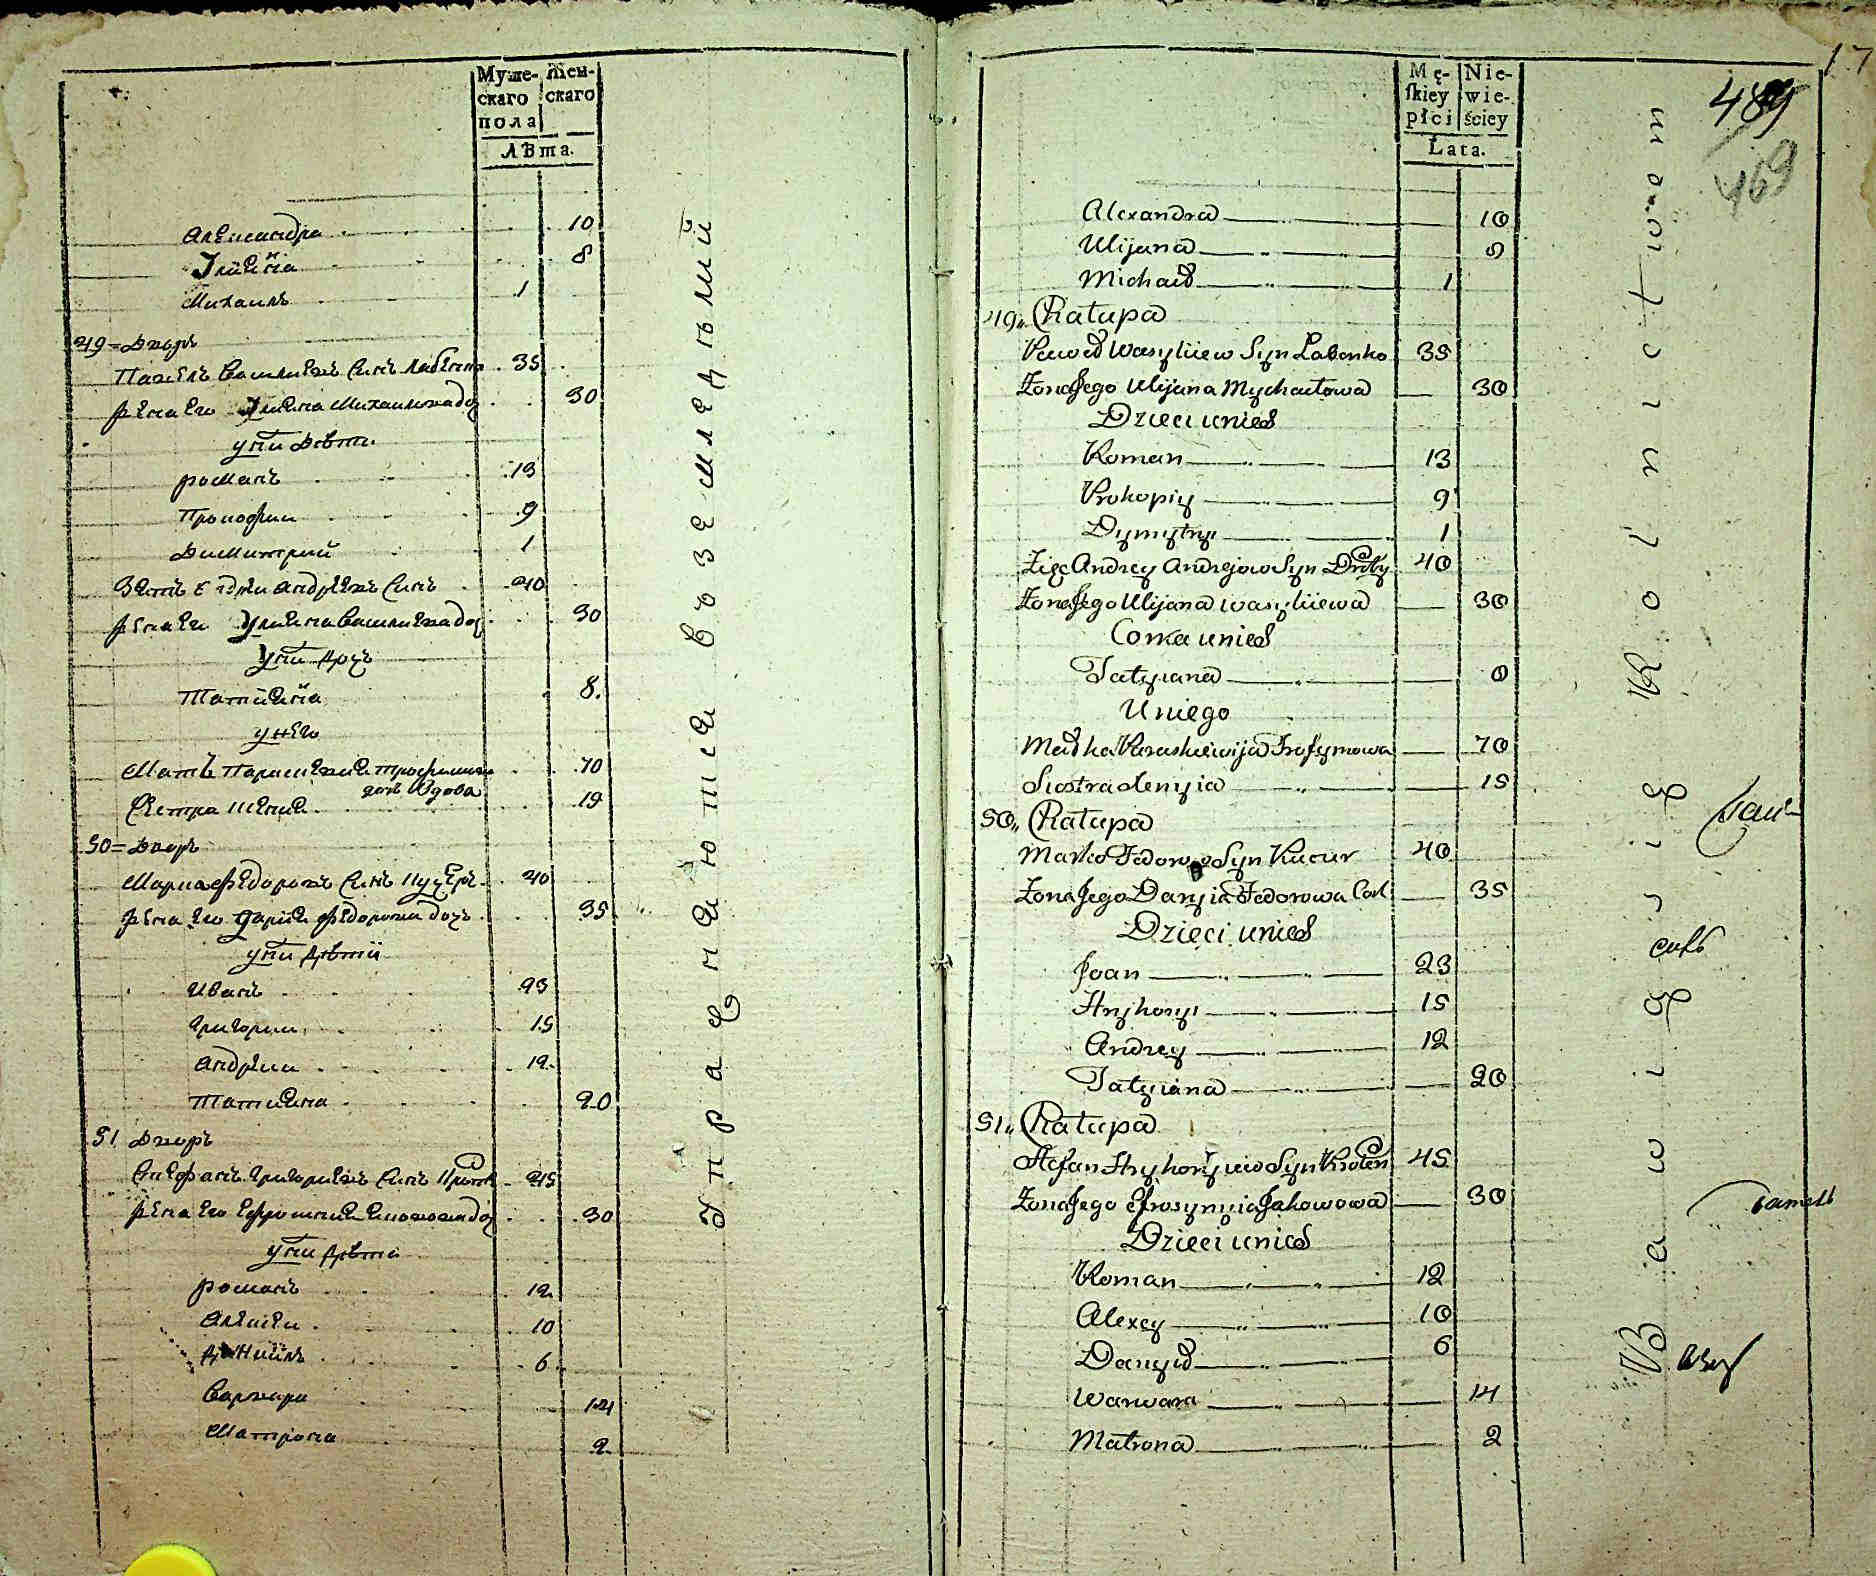 Муже-
скаго
пола
Жен-
скаго
Лѣта.
Александра 10
Улияна 8
Михаилъ 1
49 = Дворъ
Павелъ Василиевъ Синъ Лабенко 35
Жена Его Улияна Михаилова доч 30
у них дѣти
Романъ 13
Прокофии 9
Димитрий 1
Зять Андрей Андреевъ Синъ 40
Жена Его Улияна Василиева доч 30
у них доч
Татияна 8.
у него
Мать Параскевия Трофимова 70
дочь Вдова
Сестра 19
50 = Дворъ
Марко Федоровъ Синъ Куцуръ 40
Жена Его Дария Федорова доч 35
у них дѣти
Иванъ 23
Григорий 15
Андреи 12
Татияна 20
51 Дворъ
Стефанъ Григориевъ Синъ 45
Жена Его Ефросиния Яковова доч 30
у них дѣти
Романъ 12
Алексеи 10
Даниилъ 6
Варвара 14
Матрона 2
Упражняются въ земледѣлии
Mę-
skiey
płci
Nie-
wie-
ściey
Lata.
17
489
469
Alexandra 10
Ulijana 8
Michaił 1
49,, Chałupa
Paweł Wasyliiew Syn Łabenko 35
Żona Jego Ulijana Mychaiłowa 30
Dzieci u nich
Roman 13
Prokopiy 9
Dymytryi 1
Zięć Andrey Andrejow Syn 40
Żona Jego Ulijana Wasyliiewa 30
Corka u nich
Tatyiana 8
U niego
Matka Paraskiewija Trofymowa 70
Siostra 15
50,, Chałupa
Marko Fedorow Syn Kucur 40
Żona Jego Daryia Fedorowa Cor 35
Dzieci u nich
Joan 23
Hryhoryi 15
Andrey 12
Tatyiana 20
51,, Chałupa
Stefan Hryhoryiew Syn 45
Żona Jego Efrosynyia Jakowowa 30
Dzieci u nich
Roman 12
Alexey 10
Danyił 6
Warwara 14
Matrona 2
Bawią się Rolnictwem